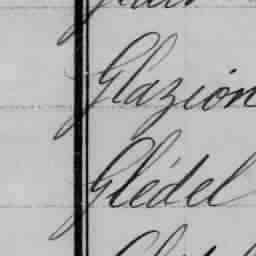 Glazion
Glédel